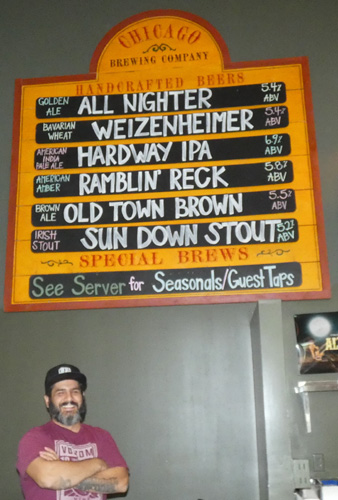 CHICAGO
BREWING COMPANY
HANDCRAFTED BEERS
GOLDEN ALE ALL NIGHTER 5.4% ABV
BAVARIAN WHEAT WEIZENHEIMER 5.4% ABV
AMERICAN INDIA PALE ALE HARDWAY IPA 6.9% ABV
AMERICAN AMBER RAMBLIN' RECK 5.8% ABV
BROWN ALE OLD TOWN BROWN 5.5% ABV
IRISH STOUT SUN DOWN STOUT 5.2% ABV
SPECIAL BREWS
See Server for Seasonals/Guest Taps